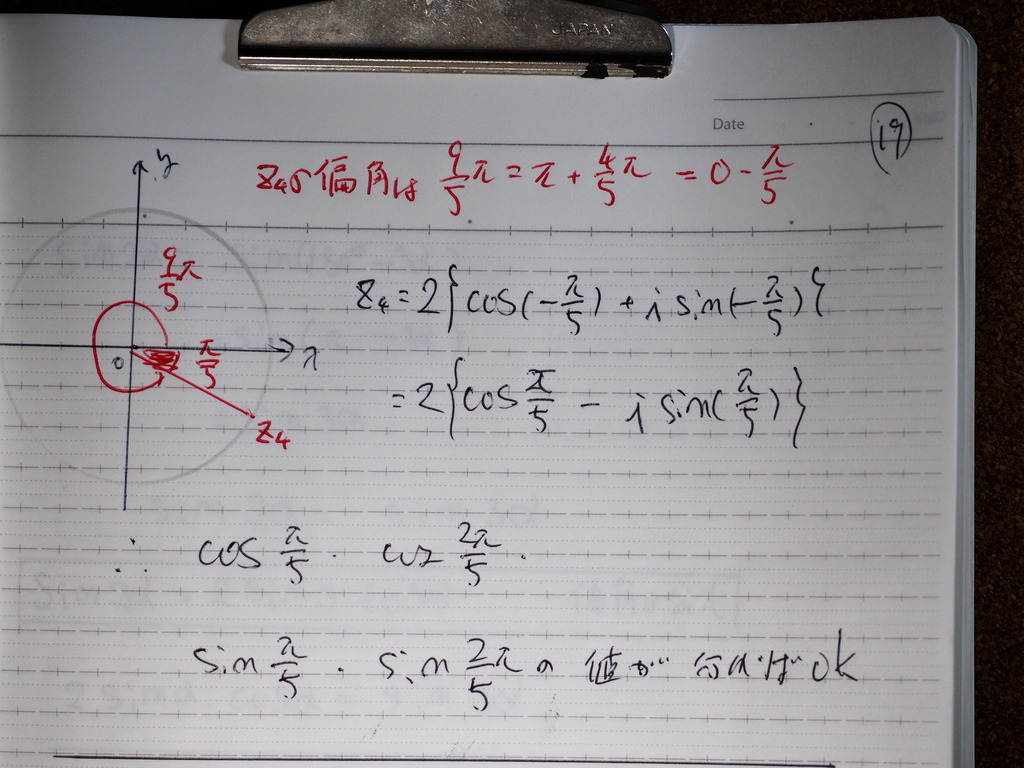 JAPAN
Date
19
z₄の偏角は 9/5 π = π + 4/5 π = 0 - π/5
y
9/5 π
z₄ = 2{cos(-π/5) + i sin(-π/5)}
0
π/5
x
= 2{cos π/5 - i sin(π/5)}
z₄
∴ cos π/5 · cos 2π/5 ·
sin π/5 · sin 2/5 π の 値が 分かれば ok